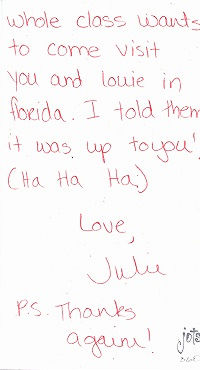 whole class wants
to come visit
you and louie in
florida. I told them
it was up to you!
(Ha Ha Ha)
Love,
Julie
P.S. Thanks
again!
jots